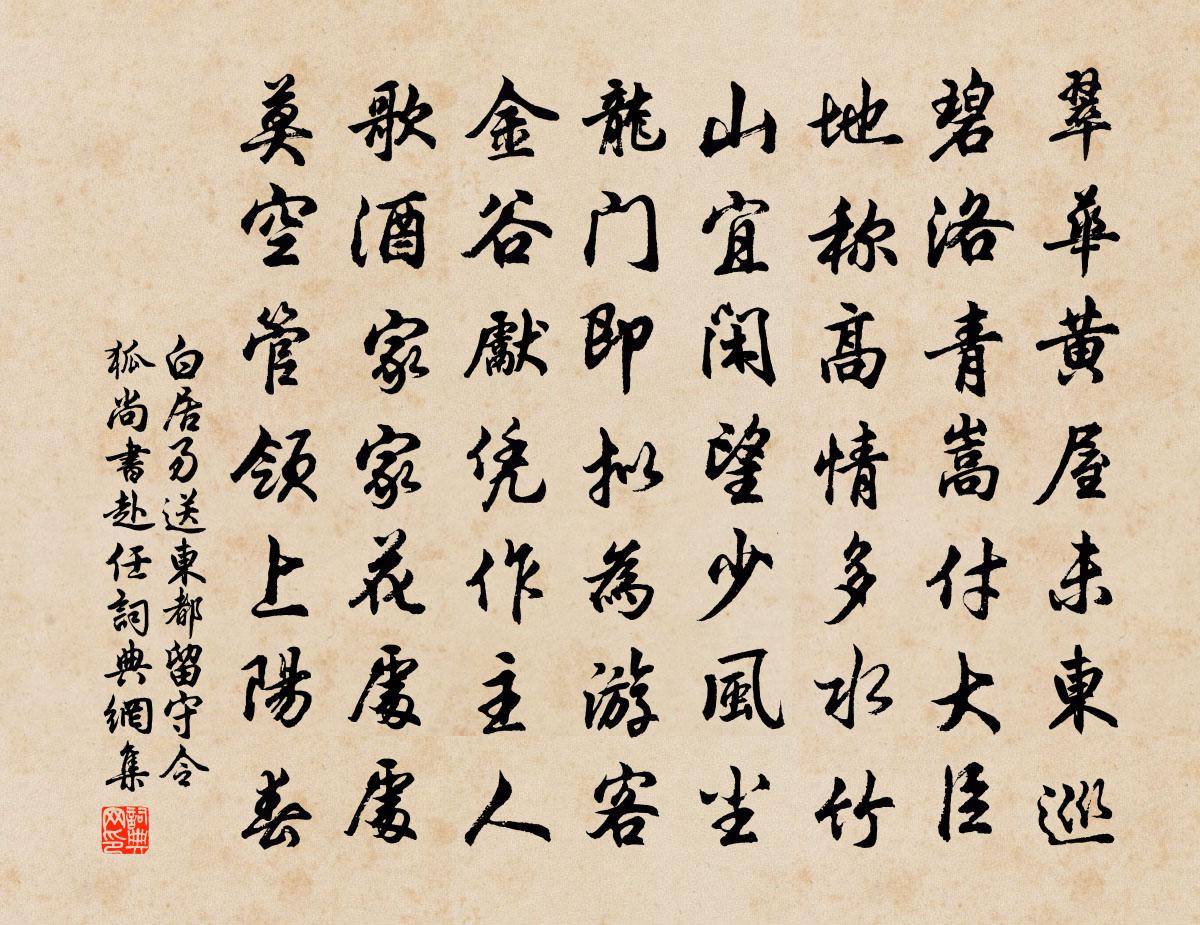 翠華黃屋未東巡
碧洛青嵩付大臣
地称高情多水竹
山宜閑望少風尘
龍门即拟為游客
金谷獻凭作主人
歌酒家家花處處
莫空管領上陽春
白居易送東都留守令
狐尚書赴任詞典網集
詞典网印